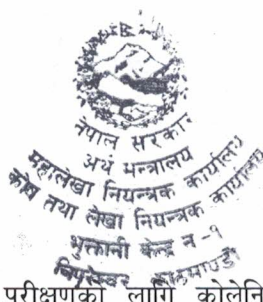 नेपाल सरकार
अर्थ मन्त्रालय
महालेखा नियन्त्रक कार्यालय
कोष तथा लेखा नियन्त्रक कार्यालय
भुक्तानी केन्द्र न -१
त्रिपुरेश्वर काठमाण्डौ
परीक्षणको लागि कोलेनि